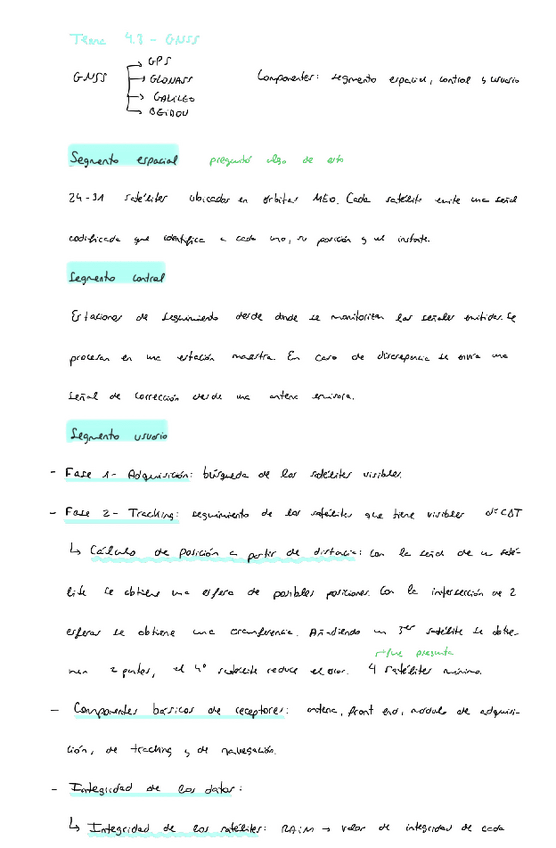 Tema 4.3 - GNSS
GPS
GNSS GLONASS Componentes: segmento espacial, control y usuario
GALILEO
BEIDOU
Segmento espacial preguntó algo de esto
24-31 satélites ubicados en órbitas MEO. Cada satélite emite una señal
codificada que identifica a cada uno, su posición y el instante.
Segmento control
Estaciones de seguimiento desde donde se monitorizan las señales emitidas. Se
procesan en una estación maestra. En caso de discrepancia se envía una
señal de corrección desde una antena emisora.
Segmento usuario
- Fase 1- Adquisición: búsqueda de los satélites visibles.
- Fase 2- Tracking: seguimiento de los satélites que tiene visibles d=C∆T
↳ Cálculo de posición a partir de distancia: con la señal de un saté-
lite se obtiene una esfera de posibles posiciones. Con la intersección de 2
esferas se obtiene una circunferencia. Añadiendo un 3er satélite se obtie-
fue pregunta
nen 2 puntos, el 4º satélite reduce el error. 4 satélites mínimo.
- Componentes básicos de receptores: antena, front end, módulo de adquisi-
ción, de tracking y de navegación.
- Integridad de los datos:
↳ Integridad de los satélites: RAIM → valor de integridad de cada